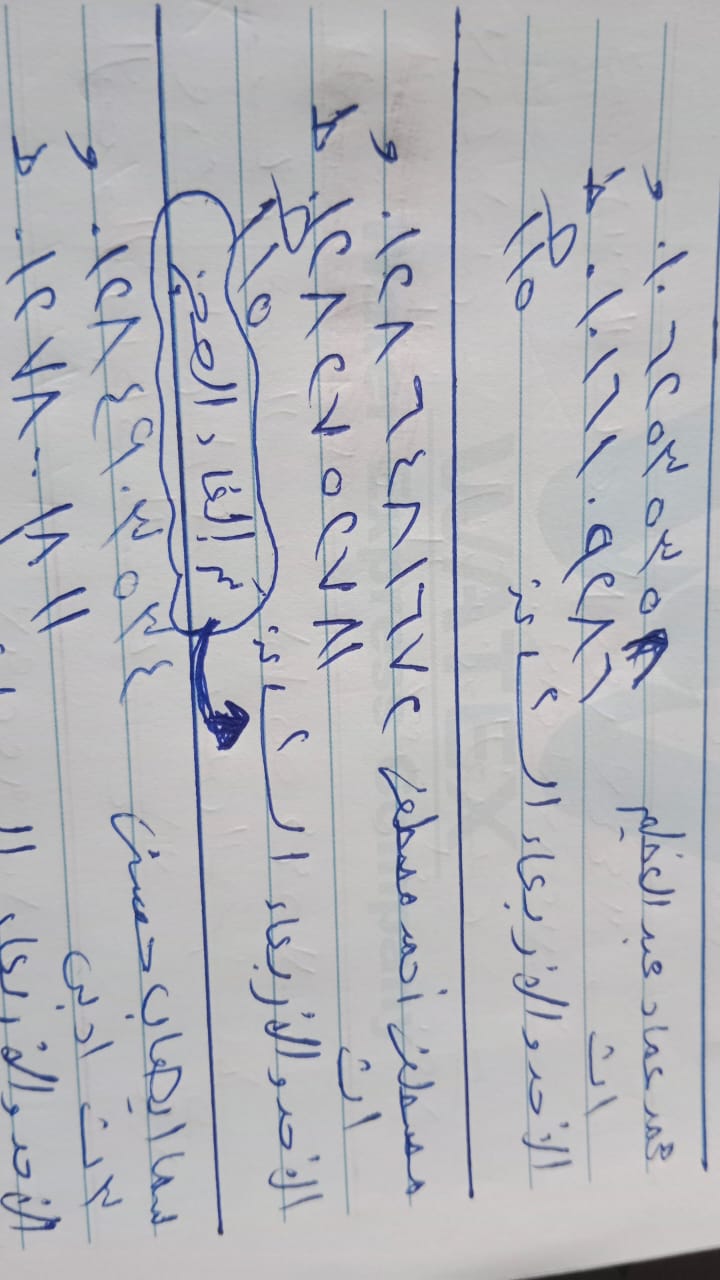 محمد عماد عبد العظيم ٠١٠٦٢٥٣٥٣٥٨ و
١ث ٠١٠١٦١٠٩٢٨٦ ط
الأحد والأربعاء الساعة ٢
٥
١١٥
WATEX
مصطفى أحمد مصطفى ٠١٢٨٦٤٨١٦٧٢ و
Water Express Company
١ث ٠١٢٨٢٧٥٢٧٨١ ط
الأحد والأربعاء الساعة ٢
٥
١١٥
تم إلغاء الحجز
سما ايهاب حسن ٠١٢٨٤٩٠٣٥٣٤ و
٣ث ادبى ٠١٢٧٨٠٠١٨١١ ط
الأحد والأربعاء